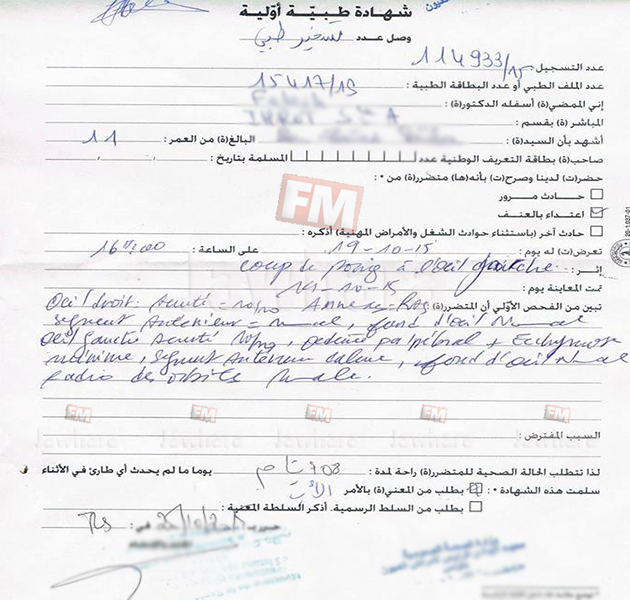 شهادة طبيّة أوّلية
وصل عدد تسخير طبي
عدد التسجيل 114933/15
عدد الملف الطبي أو عدد البطاقة الطبية : 15417/15
إني الممضي(ة) أسفله الدكتور(ة) :
المباشر(ة) بقسم :
أشهد بأن السيد(ة) البالغ(ة) من العمر : 11
صاحب(ة) بطاقة التعريف الوطنية عدد المسلمة بتاريخ :
حضر(ت) لدينا وصرح(ت) بأنه(ها) متضرر(ة) من • :
حادث مرور
اعتداء بالعنف
حادث آخر (باستثناء حوادث الشغل والأمراض المهنية) أذكره :
تعرض(ت) له يوم : 19-10-15 على الساعة : 16H00
إثر : coup de poing à l'œil gauche
تمت المعاينة يوم : 19-10-15
تبين من الفحص الأولي أن المتضرر(ة) Oeil droit: acuité = 10/10 Annexes = RAS
segment antérieur = normal, fond d'œil normal
Oeil gauche acuité 10/10, œdème palpébral + Ecchymose
minime, segment antérieur calme, fond d'œil normal
radio des orbites normale.
FM
Jawhara
FM
Jawhara
FM
Jawhara
FM
Jawhara
FM
السبب المفترض :
لذا تتطلب الحالة الصحية للمتضرر(ة) راحة لمدة : 03 أيام يوما ما لم يحدث أي طارئ في الأثناء
سلمت هذه الشهادة • : بطلب من المعني(ة) بالأمر الأب
بطلب من السلط الرسمية. أذكر السلطة المعنية :
حرر بـ في :